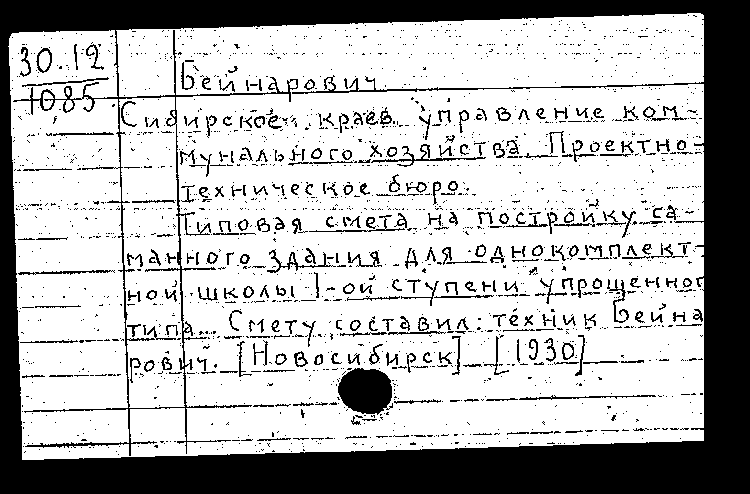 30.12
1085
Бейнарович
Сибирское краев. управление ком-
мунального хозяйства. Проектно-
техническое бюро.
Типовая смета на постройку са-
манного здания для однокомплект-
ной школы I-ой ступени упрощенног
типа... Смету составил: техник Бейна
рович. [Новосибирск] [1930]